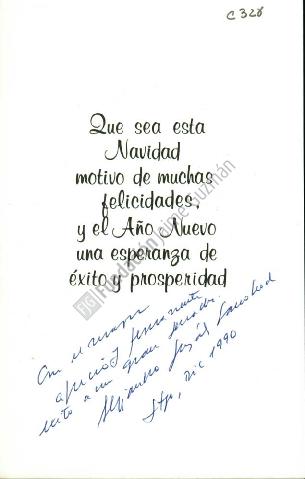 C 328
Que sea esta
Navidad
motivo de muchas
felicidades,
y el Año Nuevo
una esperanza de
éxito y prosperidad
Fundación Jaime Guzmán
Con el mayor
aprecio y permanente
éxito a un gran senador.
Alejandro
Stgo, Dic 1990